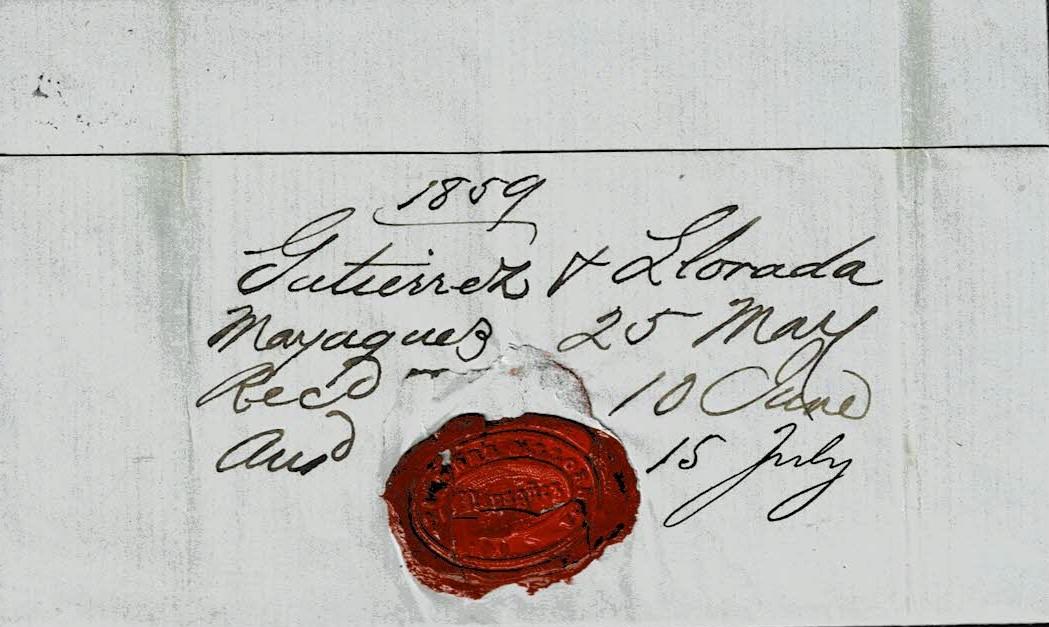 1859
Gutierrez & Llorada
Mayaguez 25 May
Recd 10 June
Ansd 15 July